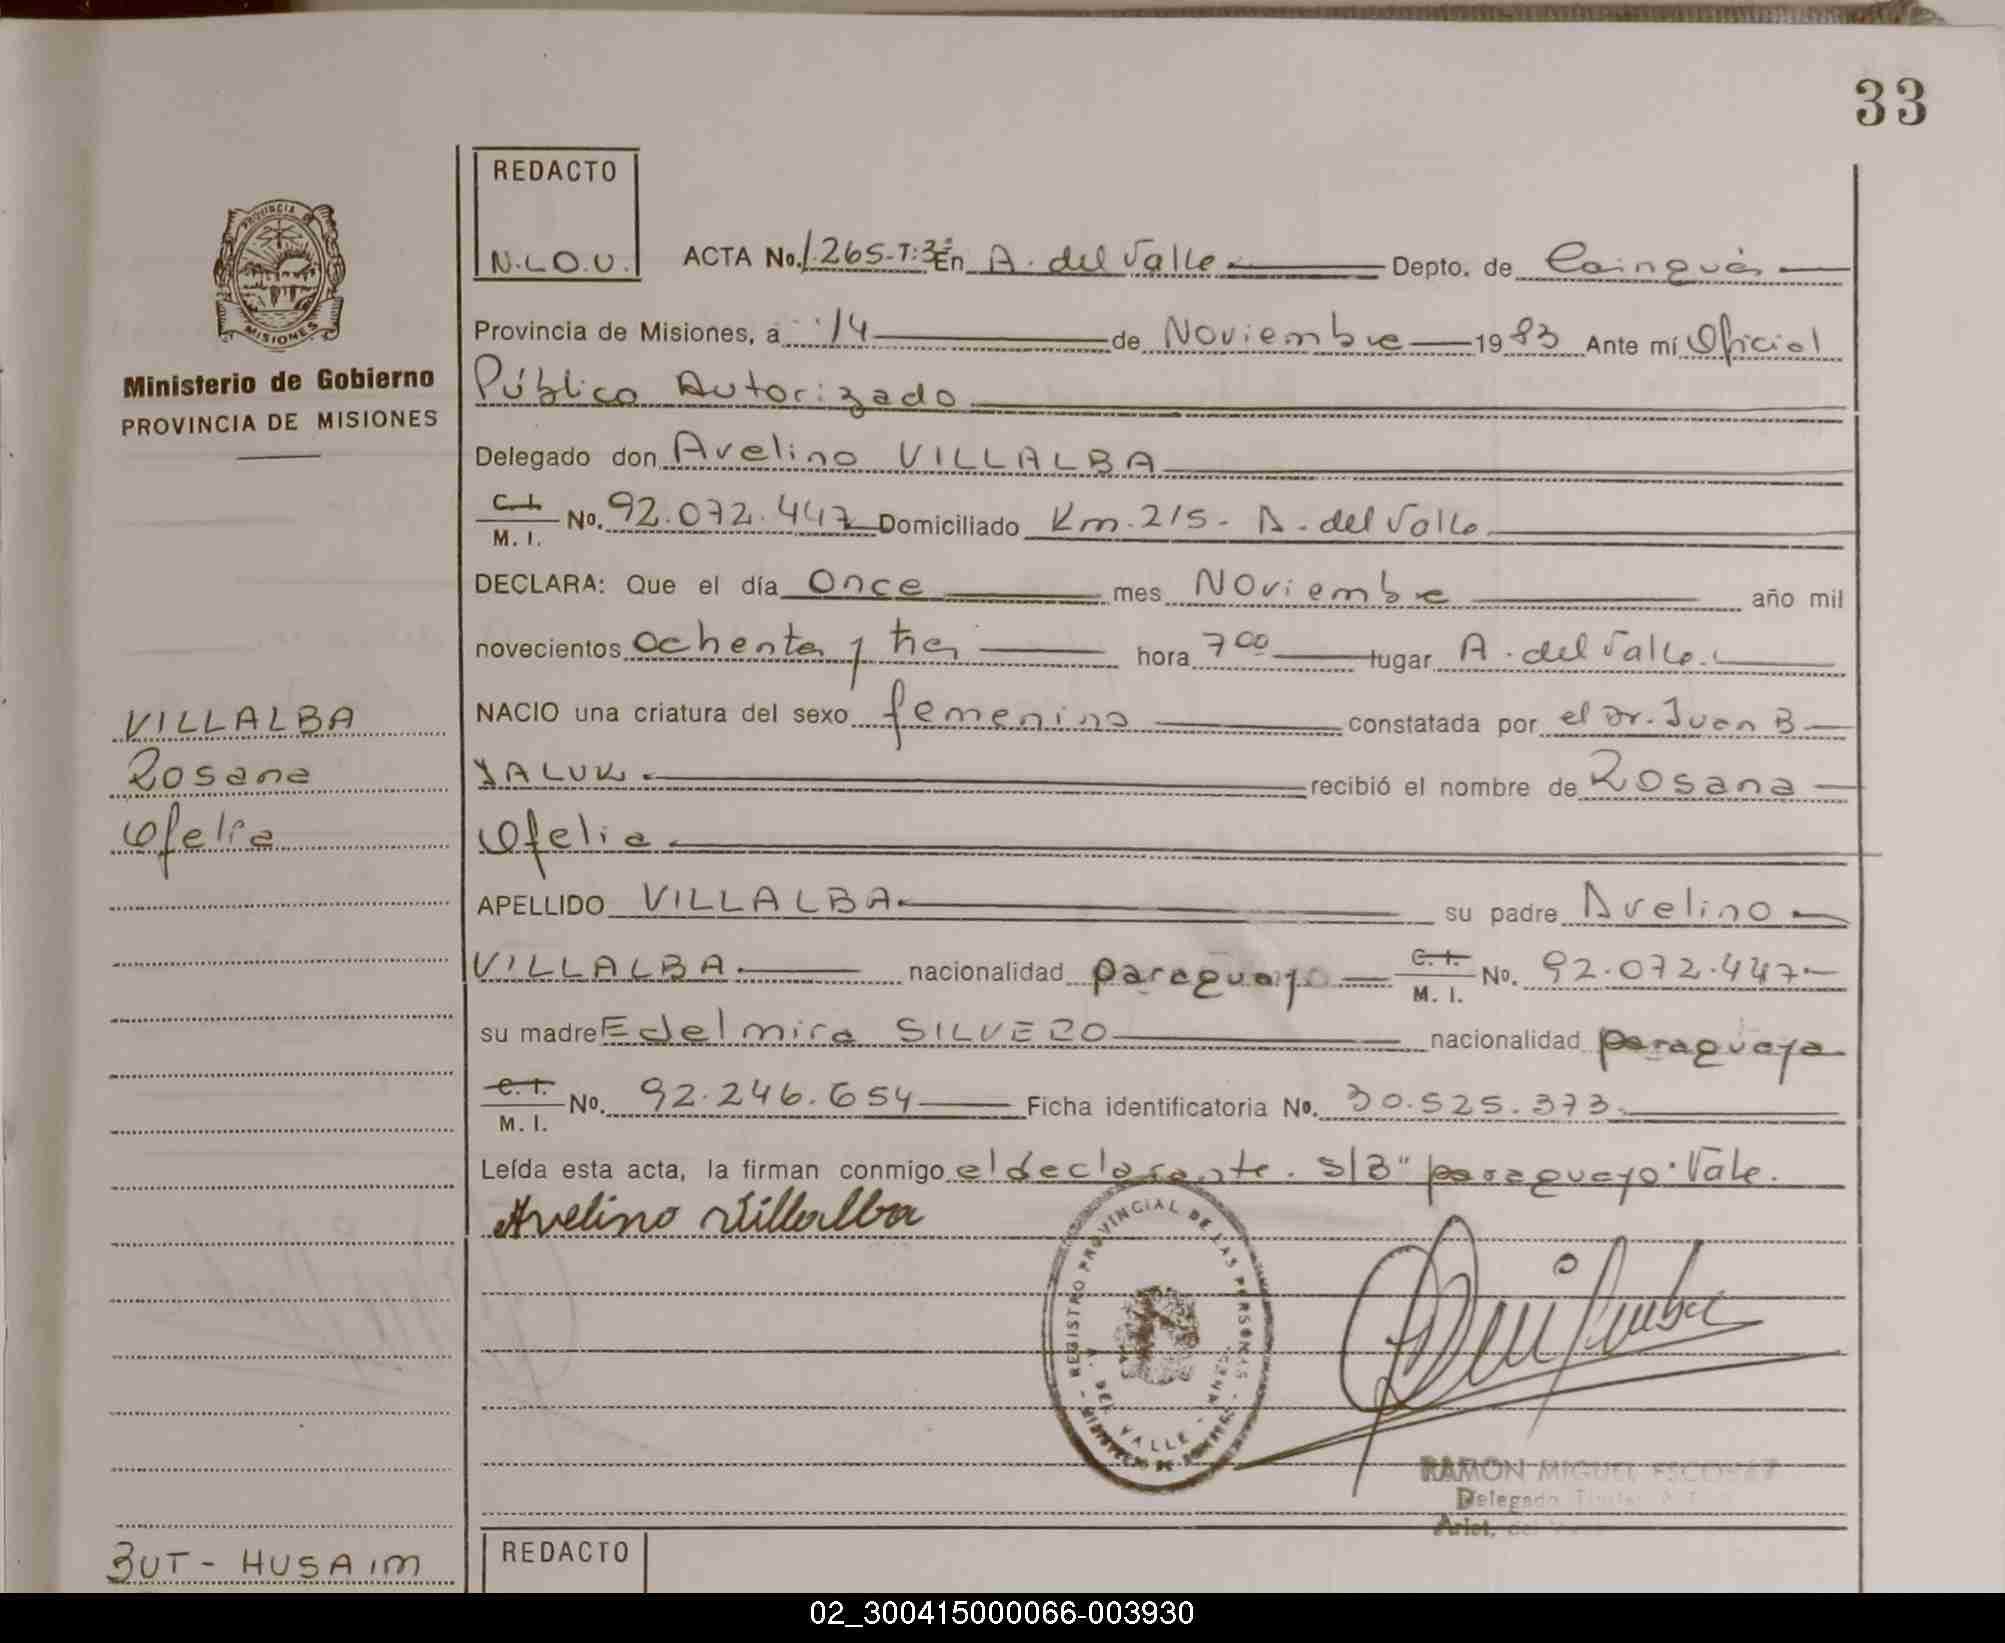 33
REDACTO
N.L.O.U.
ACTA No. 1.265-T:3º En A. del Valle Depto. de Cainguás
Provincia de Misiones, a 14 de Noviembre 1983 Ante mí Oficial
Público Autorizado
Delegado don Avelino VILLALBA
C. I. M. I. No. 92.072.447 Domiciliado Km. 215 - A. del Valle
DECLARA: Que el día Once mes Noviembre año mil
novecientos ochenta y tres hora 7 00 lugar A. del Valle.
NACIO una criatura del sexo femenino constatada por el Dr. Juan B
YALUK. recibió el nombre de Rosana
Ofelia
APELLIDO VILLALBA su padre Avelino
VILLALBA nacionalidad paraguayo C. I. M. I. No. 92.072.447
su madre Edelmira SILVERO nacionalidad paraguaya
C. I. M. I. No. 92.246.654 Ficha identificatoria No. 30.525.373.
Leída esta acta, la firman conmigo el declarante. S/B" paraguayo. Vale.
Avelino Villalba
REGISTRO PROVINCIAL DE LAS PERSONAS
A. DEL VALLE
MINISTERIO DE GOBIERNO
RAMON MIGUEL ESCOBAR
Delegado Titular
Arist. del Valle
PROVINCIA
MISIONES
Ministerio de Gobierno
PROVINCIA DE MISIONES
VILLALBA
Rosana
Ofelia
BUT - HUSAIM
REDACTO
02_300415000066-003930